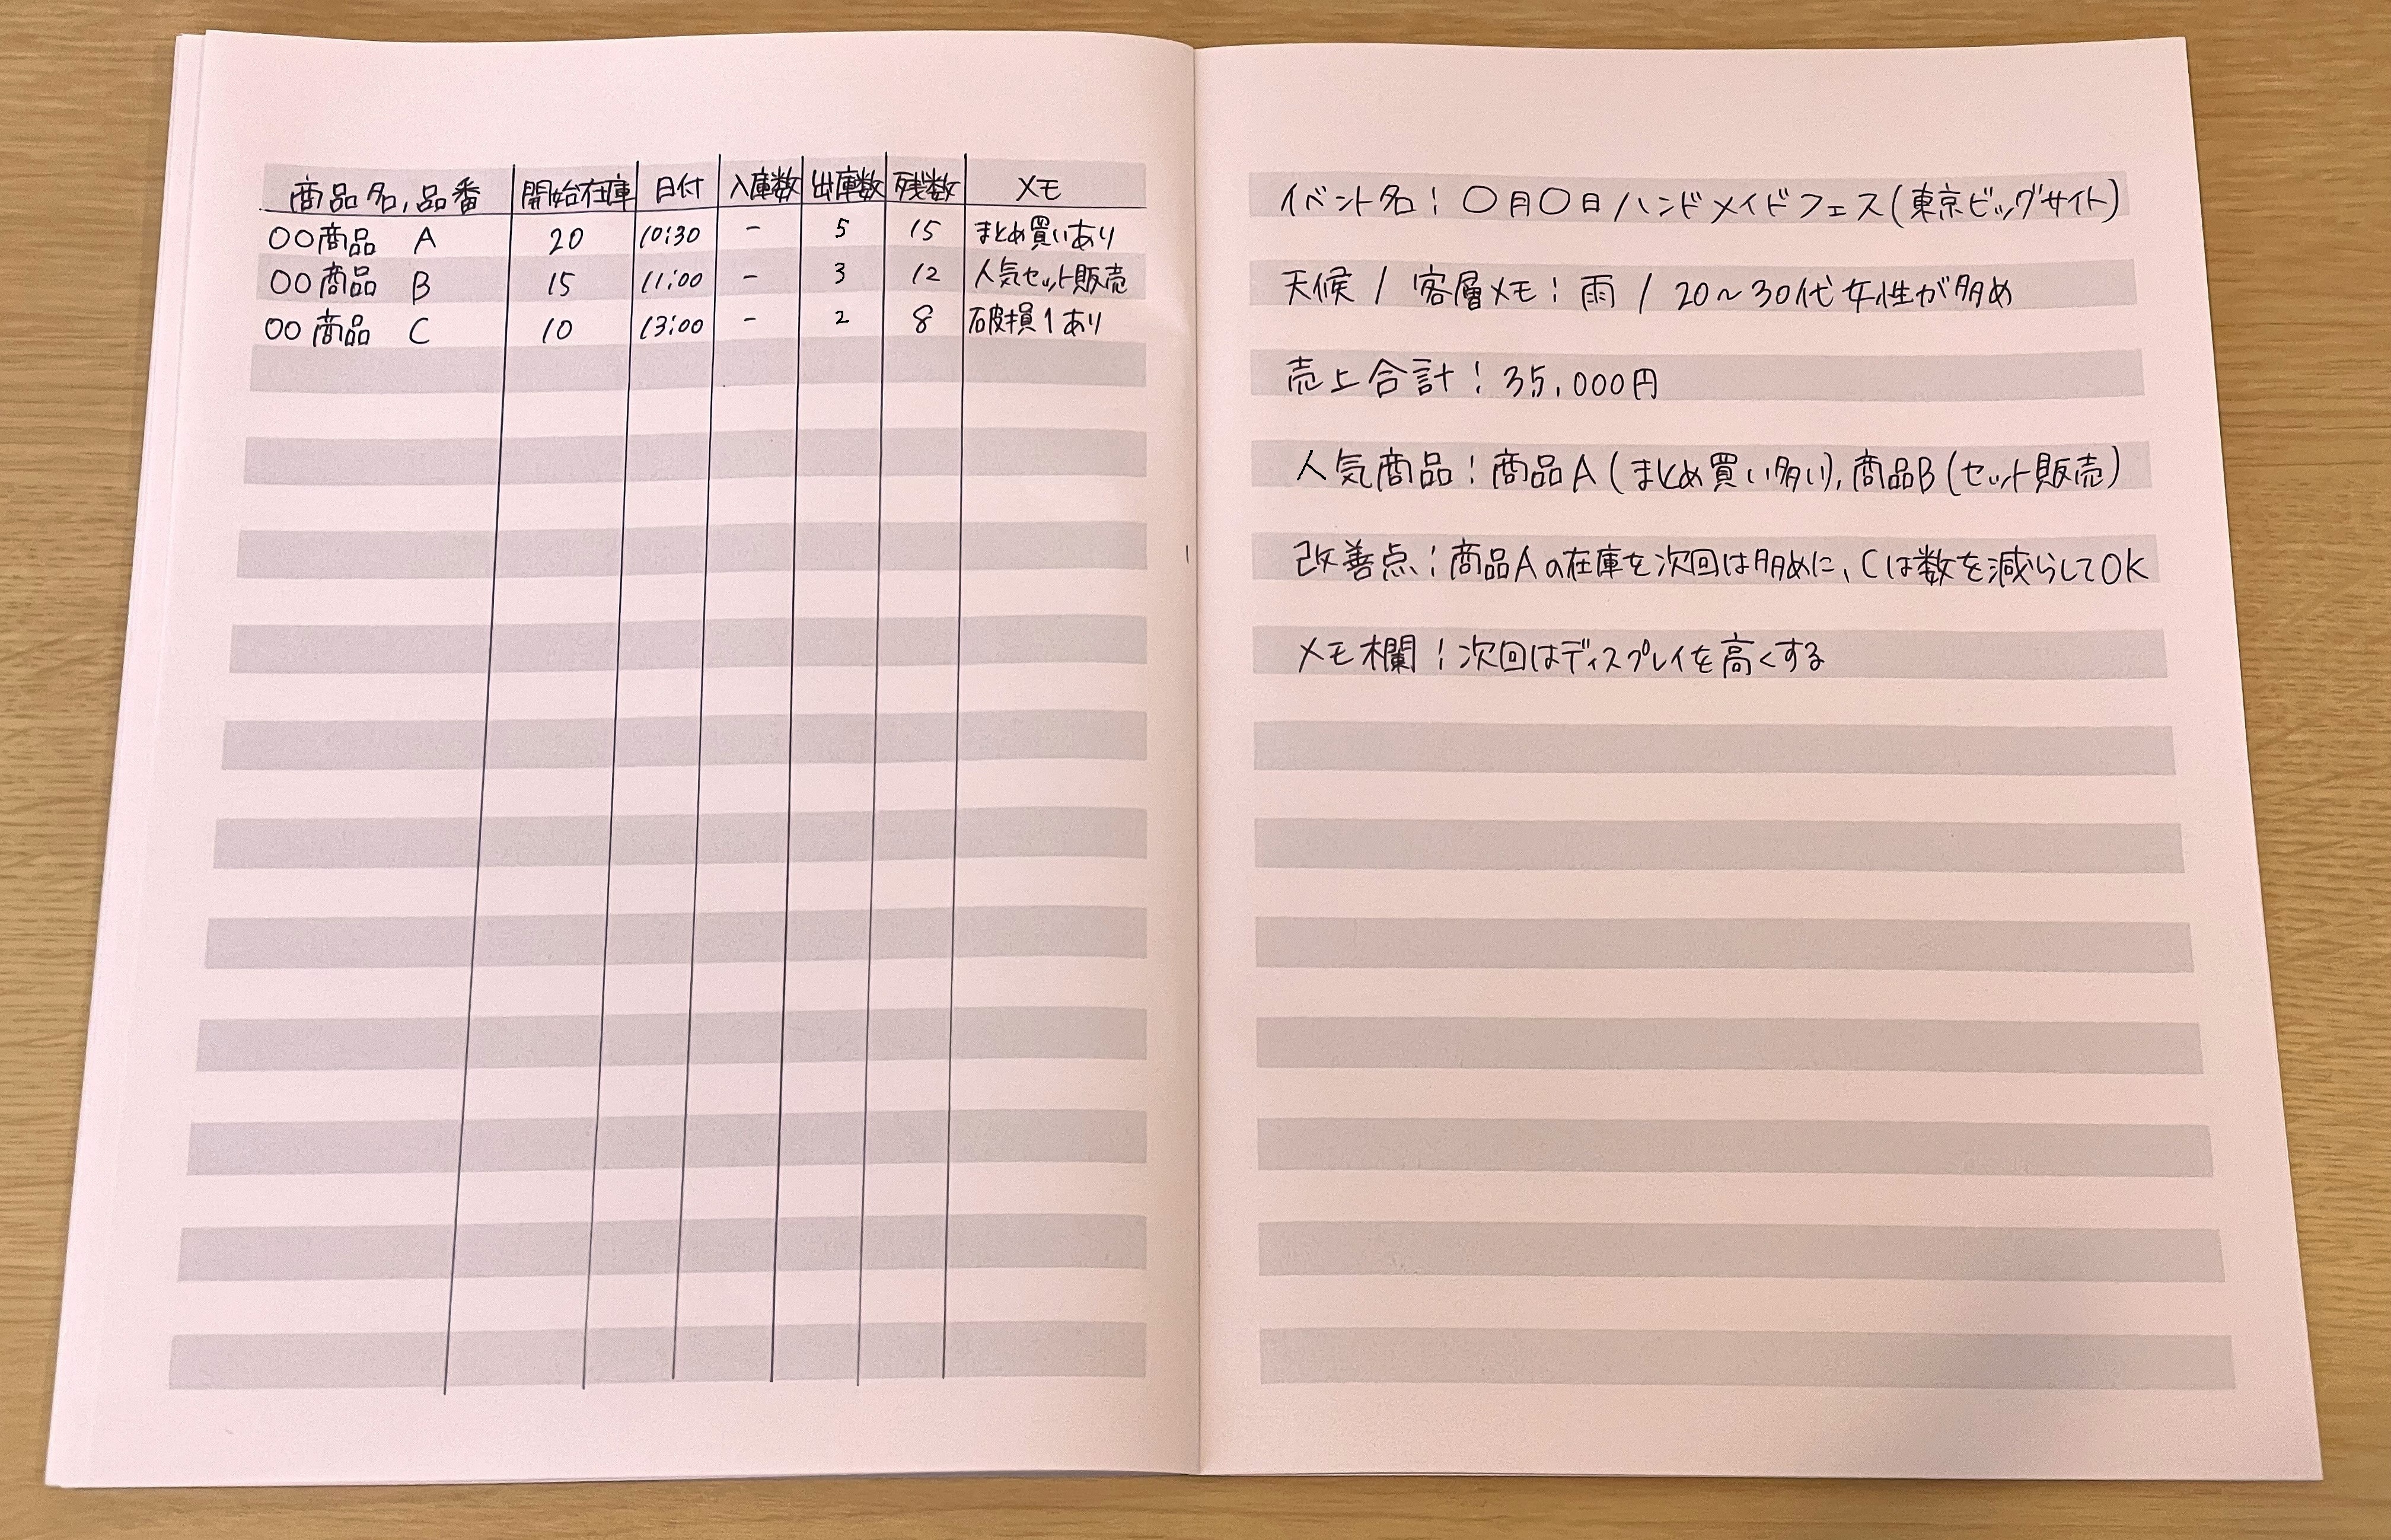 商品名,品番 開始在庫 日付 入庫数 出庫数 残数 メモ
〇〇商品 A 20 10:30 - 5 15 まとめ買いあり
〇〇商品 B 15 11:00 - 3 12 人気セット販売
〇〇商品 C 10 13:00 - 2 8 破損1あり
イベント名:〇月〇日ハンドメイドフェス(東京ビッグサイト)
天候 / 客層メモ:雨 / 20〜30代女性が多め
売上合計:35,000円
人気商品:商品A(まとめ買い多い),商品B(セット販売)
改善点:商品Aの在庫を次回は多めに、Cは数を減らしてOK
メモ欄:次回はディスプレイを高くする